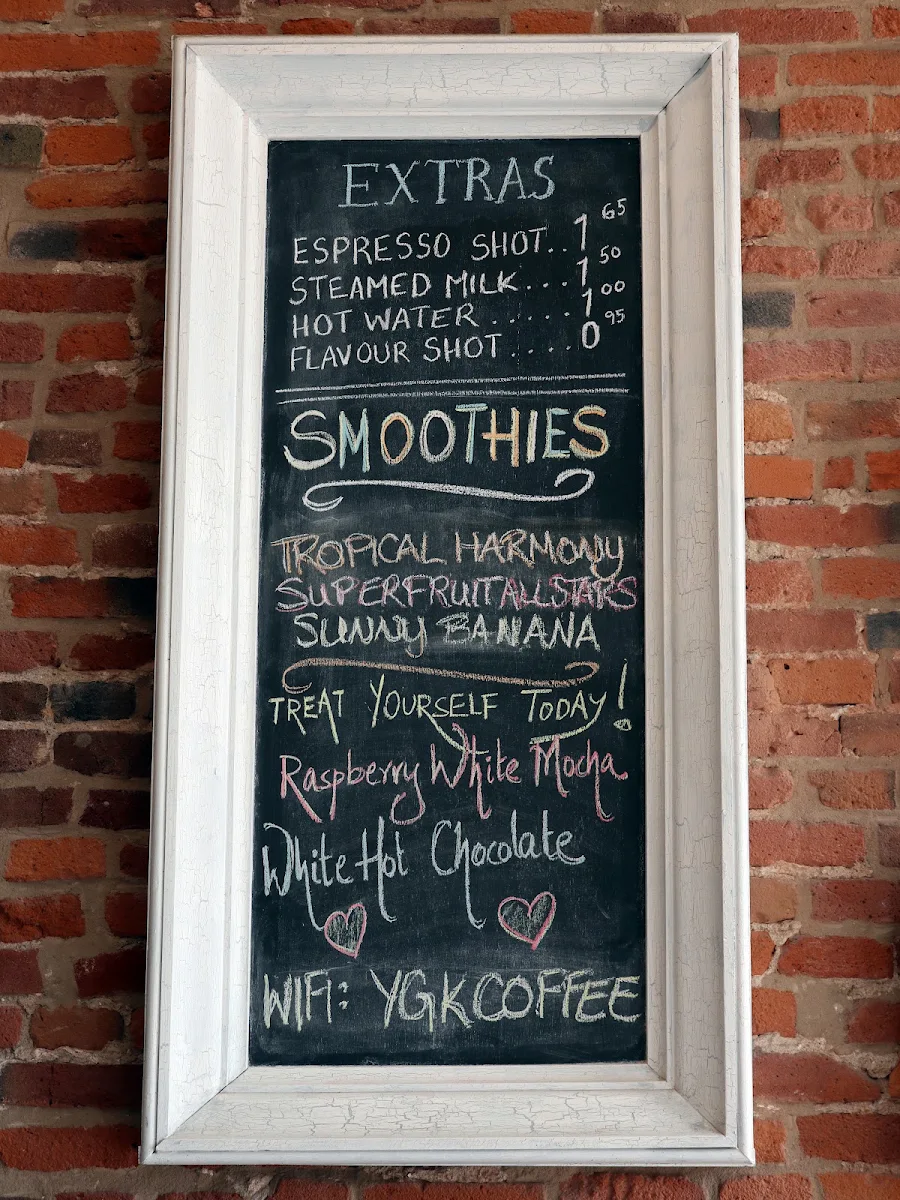 EXTRAS
ESPRESSO SHOT..1 65
STEAMED MILK...1 50
HOT WATER.....1 00
FLAVOUR SHOT....0 95
SMOOTHIES
TROPICAL HARMONY
SUPERFRUIT ALLSTARS
SUNNY BANANA
TREAT YOURSELF TODAY!
Raspberry White Mocha
White Hot Chocolate
WIFI: YGKCOFFEE